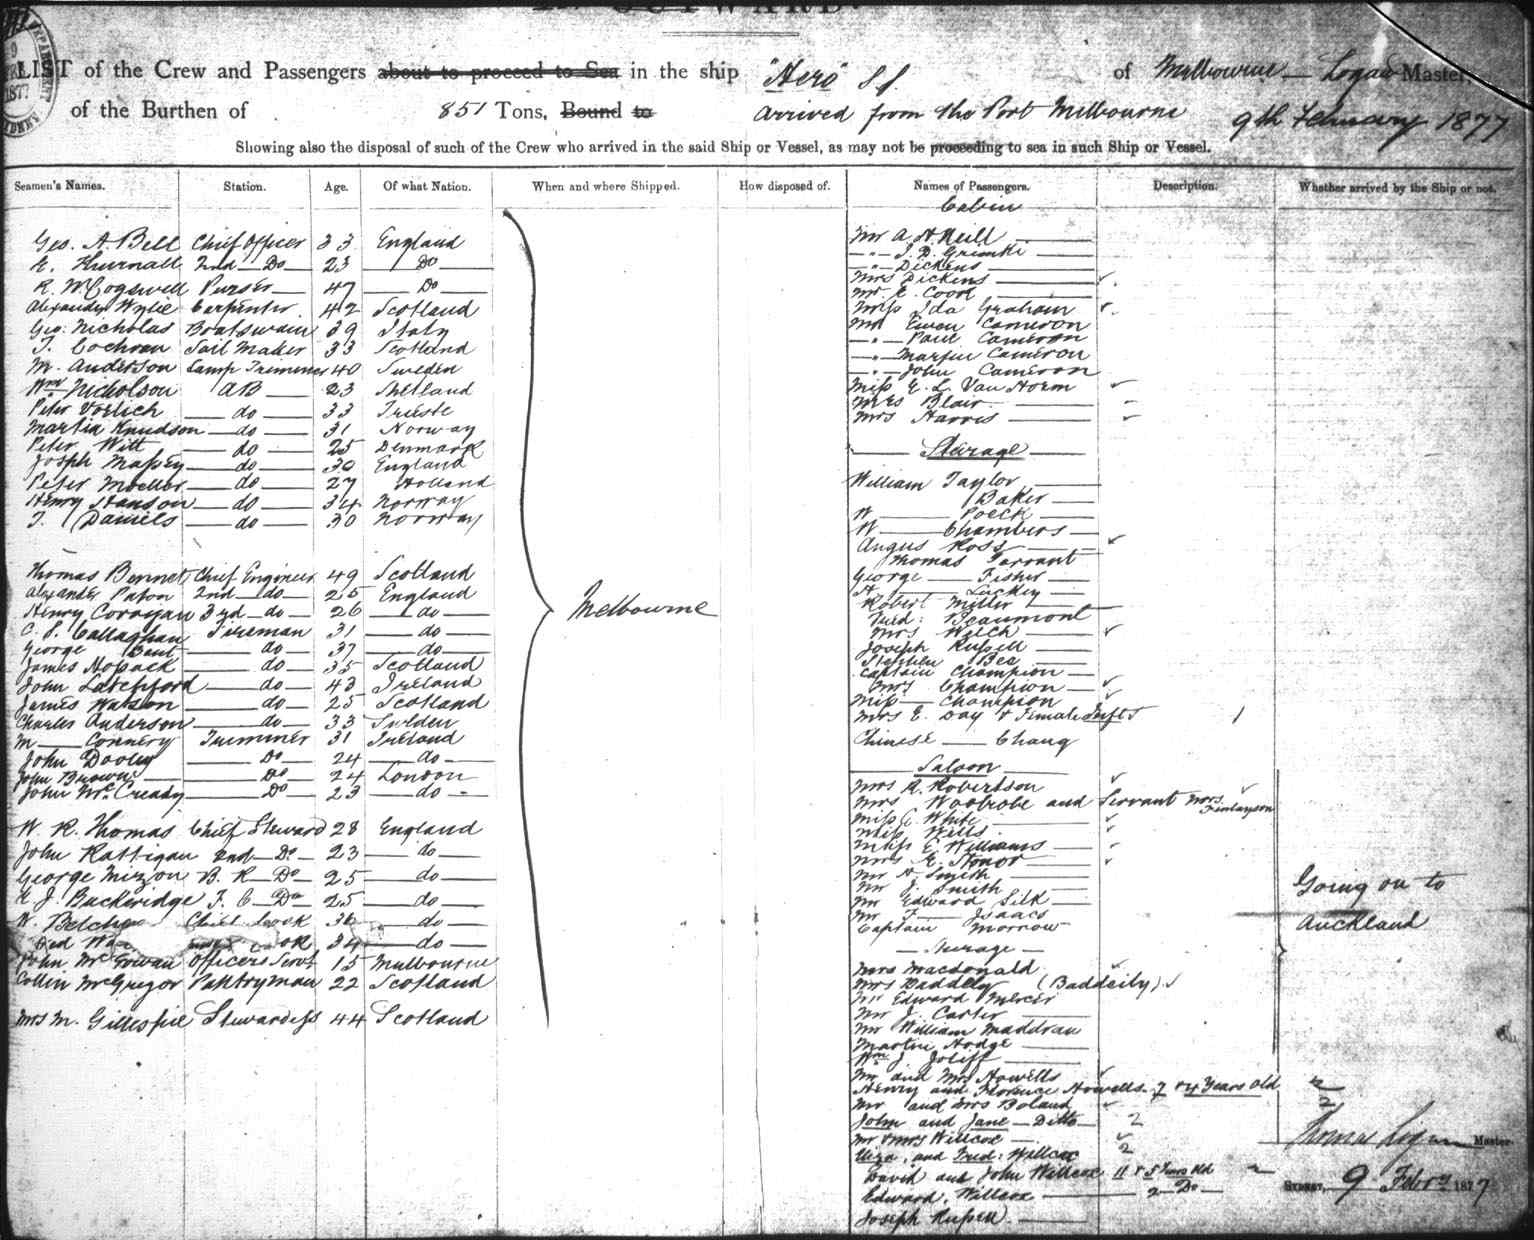 LIST of the Crew and Passengers about to proceed to Sea in the ship "Hero" S.S. of Melbourne — Logan Master,
of the Burthen of 851 Tons, Bound to arrived from the Port Melbourne 9th February 1877
Showing also the disposal of such of the Crew who arrived in the said Ship or Vessel, as may not be proceeding to sea in such Ship or Vessel.
Seamen's Names. Station. Age. Of what Nation. When and where Shipped. How disposed of.
Geo. A. Bell Chief Officer 33 England
E. Thurnall 2nd Do 23 Do
R. W. Cogswell Purser 47 Do
Alexander Wylie Carpenter 42 Scotland
Geo. Nicholas Boatswain 39 Italy
T. Cochran Sail Maker 33 Scotland
M. Anderson Lamp Trimmer 40 Sweden
Wm Nicholson AB 23 Shetland
Peter Vorlich do 33 Trieste
Martin Knudson do 31 Norway
Peter Witt do 25 Denmark
Joseph Massey do 30 England
Peter Moeller do 27 Holland
Henry Hanson do 34 Norway
T. Daniels do 30 Norway
Thomas Bennet Chief Engineer 49 Scotland
Alexander Paton 2nd do 25 England
Henry Corrigan 3rd do 26 do
C. S. Callaghan Fireman 31 do
George Bent do 37 do
James Hossack do 35 Scotland
John Latchford do 43 Ireland
James Watson do 25 Scotland
Charles Anderson do 33 Sweden
M Connery Trimmer 31 Ireland
John Dooley Do 24 do
John Brown Do 24 London
John McCready Do 23 do
W. R. Thomas Chief Steward 28 England
John Rattigan 2nd Do 23 do
George Mizzon B. R Do 25 do
R J. Buckeridge F. C Do 25 do
W. Belcher Chief Cook 36 do
34 do
John McGowan Officers Servt 15 Melbourne
Collin McGregor Pantryman 22 Scotland
Mrs M. Gillespie Stewardess 44 Scotland
Melbourne
Names of Passengers. Description. Whether arrived by the Ship or not.
Cabin
Mr A. H. Neill
" J. D. Grimke
" Dickens
Mrs Dickens
Mr E. Cook
Miss Ida Graham
Mr Ewen Cameron
" Paul Cameron
" Martin Cameron
" John Cameron
Miss E. L. Van Norm
Mrs Blair
Mrs Harris
Steerage
William Taylor
Baker
W Poeck
W Chambers
Angus Ross
Thomas Tarrant
George Fisher
H Luckey
Robert Miller
Fred: Beaumont
Mrs Welch
Joseph Russell
Stephen Bee
Captain Champion
Mrs Champion
Miss Champion
Mrs E. Day & Female Infts 1
Chinese Chang
Saloon
Mrs R. Robertson
Mrs Woolrobe and Servant Mrs Finlayson
Miss C. White
Miss Wells
Miss E Williams
Mrs E. Honor
Mr N Smith
Mr J. Smith
Mr Edward Silk
Mr F Isaacs
Captain Morrow
Steerage
Mrs Macdonald
Mrs Daddely (Baddeily)
Mr Edward Mercer
Mr J. Carter
Mr William Maddrau
Martin Hodge
Wm J. Joliff
Mr and Mrs Howells
Henry and Florence Howells 7 & 4 Years Old 2
Mr and Mrs Boland 2
John and Jane Ditto 2
Mr & Mrs Willcox
Eliza, and Fred: Willcox 2
David and John Willcox 11 & 5 Years Old
Edward, Willcox 2 Do
Joseph Russell
Going on to
Auckland
Thomas Logan Master.
SYDNEY, 9 Febry 1877